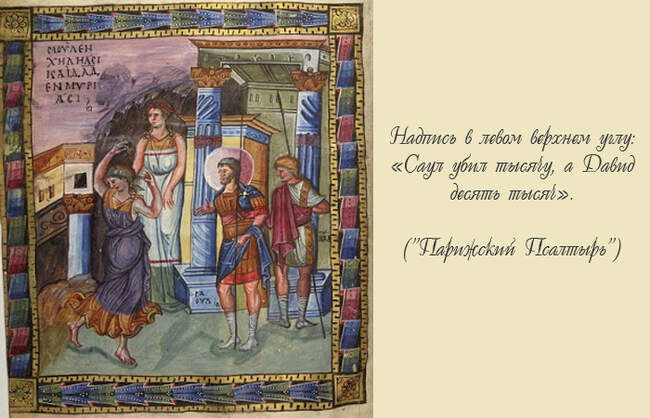 CΑΟΥΛΕΝ
ΧΙΛΙΑCΙ
ΚΑΙΔΑΔ
ΕΝΜΥΡΙ
ΑCΙ
CΑ
ΟΥΛ
Надпись в левом верхнем углу:
«Саул убил тысячу, а Давид
десять тысяч».
("Парижский Псалтырь")